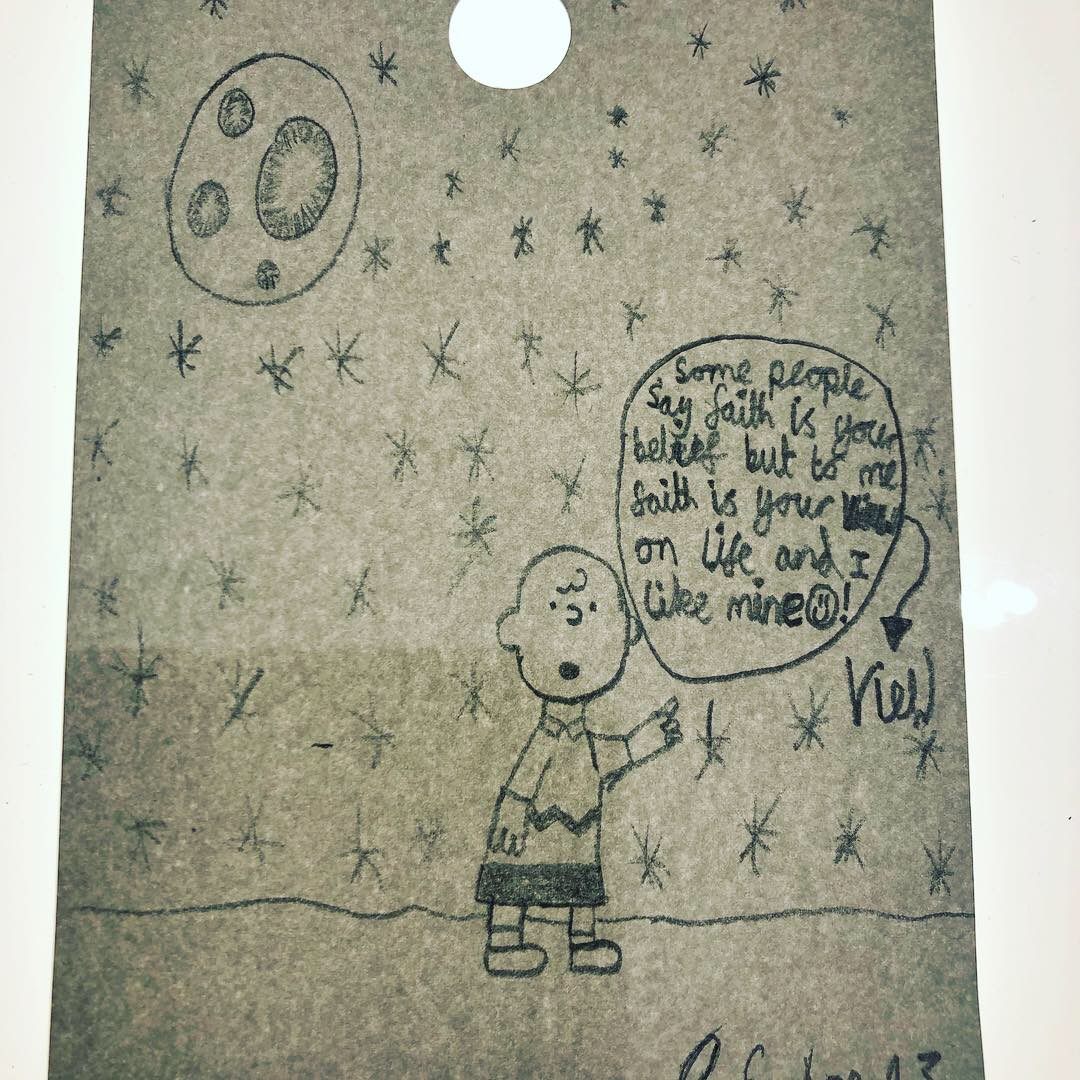 some people
say faith is your
belief but to me
faith is your view
on life and I
like mine☺!
View